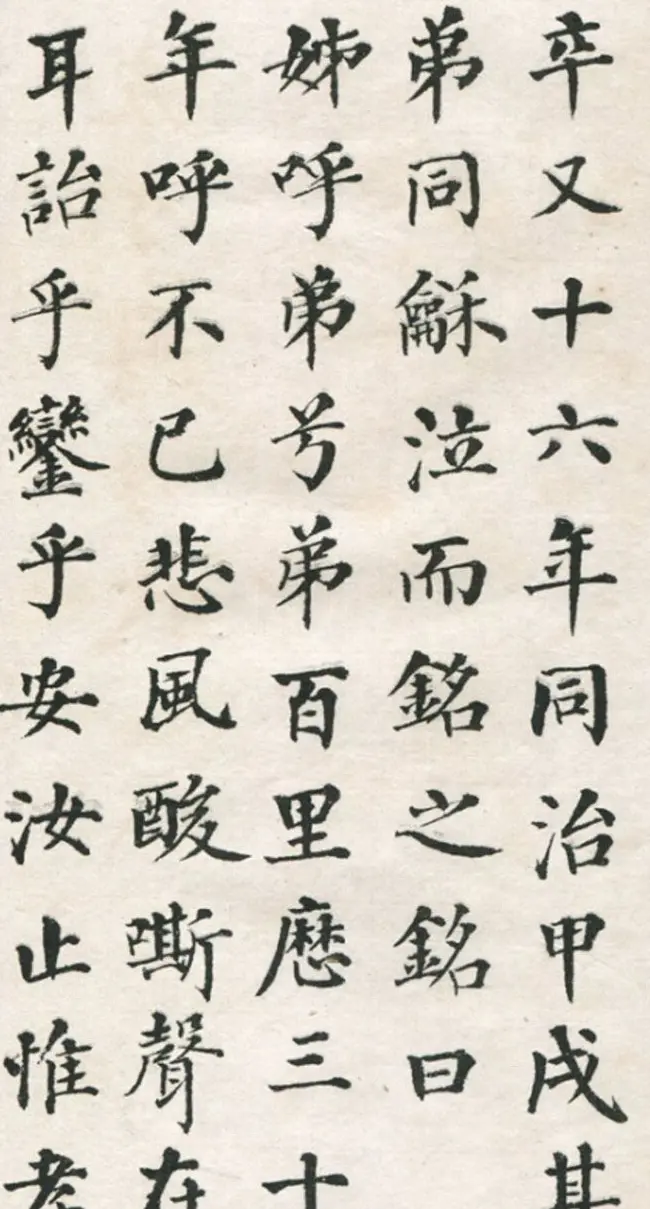 卒又十六年同治甲戌其
弟同龢泣而銘之銘曰
姊呼弟兮弟百里歷三十
年呼不已悲風酸嘶聲在
耳詒乎鑾乎安汝止惟孝